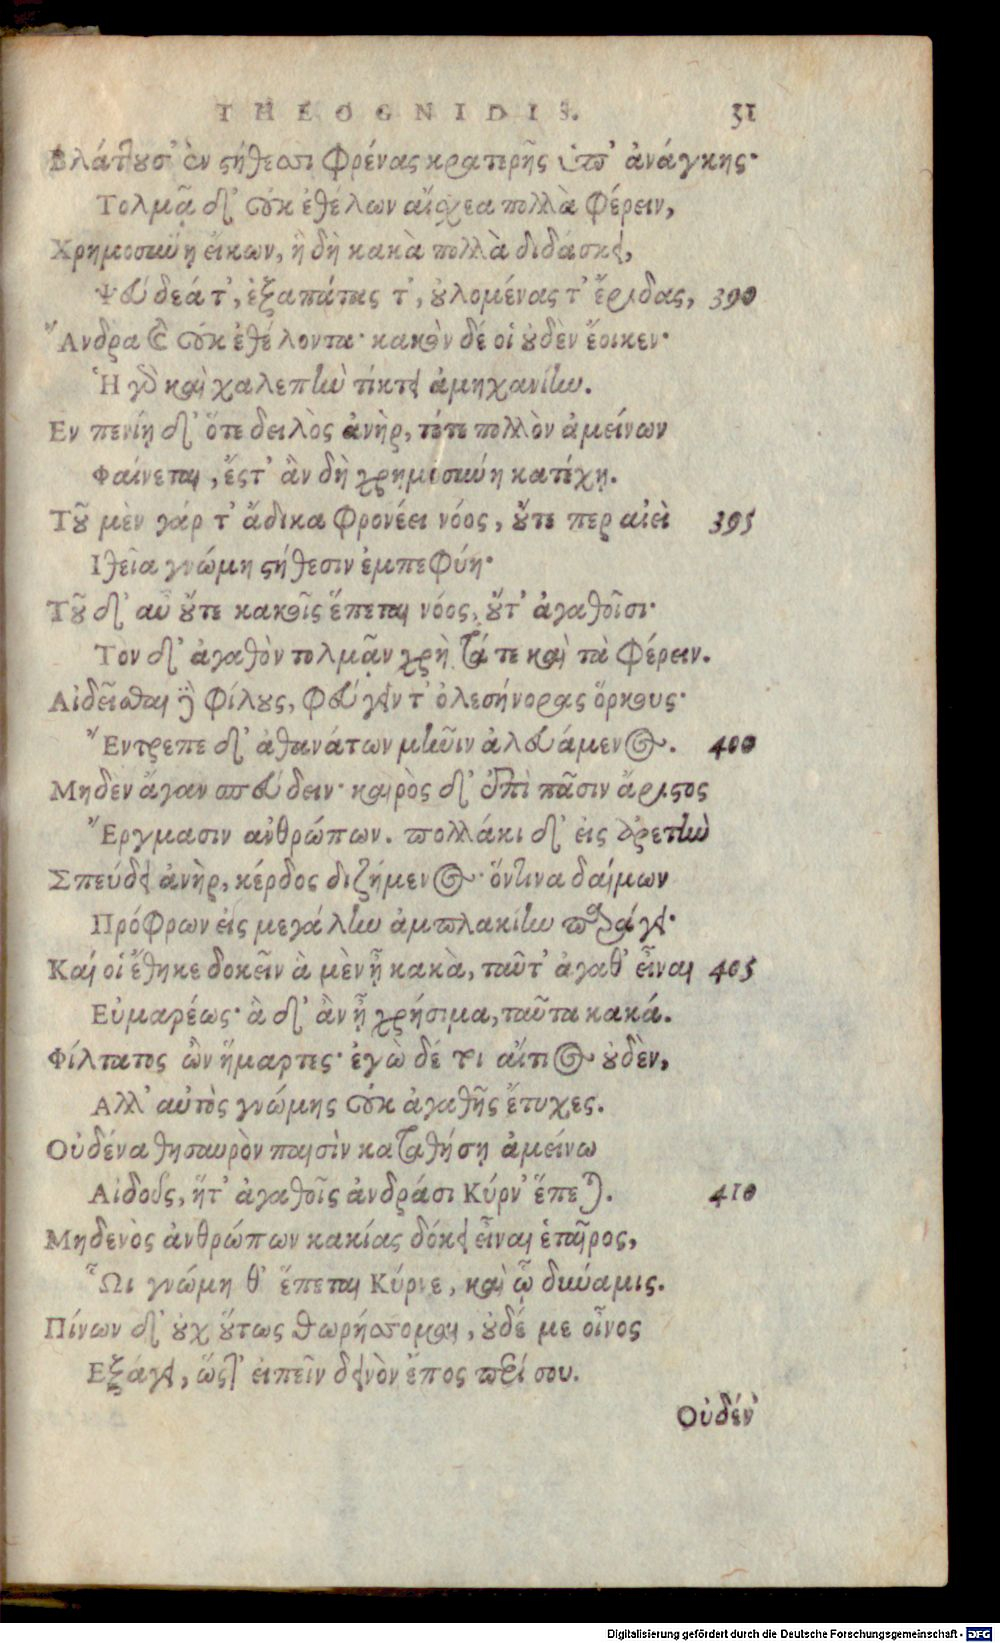 THEOGNIDIS. 31
Βλάπτουσ' ἐν στήθεσσι φρένας κρατερῆς ὑπ' ἀνάγκης·
Τολμᾷ δ' οὐκ ἐθέλων αἴσχεα πολλὰ φέρειν,
Χρημοσύνῃ εἴκων, ἣ δὴ κακὰ πολλὰ διδάσκει,
Ψεύδεά τ', ἐξαπάτας τ', οὐλομένας τ' ἔριδας, 390
Ἄνδρα καὶ οὐκ ἐθέλοντα· κακὸν δέ οἱ οὐδὲν ἔοικεν·
Ἡ γὰρ καὶ χαλεπὴν τίκτει ἀμηχανίην.
Εν πενίῃ δ' ὅτε δειλὸς ἀνὴρ, τότε πολλὸν ἀμείνων
Φαίνεται, ἔστ' ἂν δὴ χρημοσύνη κατέχῃ.
Τοῦ μὲν γάρ τ' ἄδικα φρονέει νόος, οὔτε περ αἰεὶ 395
Ιθεῖα γνώμη στήθεσιν ἐμπεφύη·
Τοῦ δ' αὖ οὔτε κακοῖς ἕπεται νόος, οὔτ' ἀγαθοῖσι·
Τον δ' ἀγαθὸν τολμᾷν χρὴ τά τε καὶ τὰ φέρειν.
Αἰδεῖσθαι δὲ φίλους, φεύγειν τ' ὀλεσήνορας ὅρκους·
Ἔντρεπε δ' ἀθανάτων μῆνιν ἀλευάμενος. 400
Μηδὲν ἄγαν σπεύδειν· καιρὸς δ' ἐπὶ πᾶσιν ἄριστος
Ἔργμασιν ἀνθρώπων. πολλάκι δ' εἰς ἀρετὴν
Σπεύδει ἀνὴρ, κέρδος διζήμενος· ὅντινα δαίμων
Πρόφρων εἰς μεγάλην ἀμπλακίην παράγει·
Καί οἱ ἔθηκε δοκεῖν ἃ μὲν ᾖ κακὰ, ταῦτ' ἀγαθ' εἶναι 405
Εὐμαρέως· ἃ δ' ἂν ᾖ χρήσιμα, ταῦτα κακά.
Φίλτατος ὢν ἥμαρτες· ἐγὼ δέ τι αἴτιος οὐδὲν,
Αλλ' αὐτὸς γνώμης οὐκ ἀγαθῆς ἔτυχες.
Οὐδένα θησαυρὸν παισὶν καταθήσῃ ἀμείνω
Αἰδοῦς, ἥτ' ἀγαθοῖς ἀνδράσι Κύρν' ἕπεται. 410
Μηδενὸς ἀνθρώπων κακίας δόκει εἶναι ἑταῖρος,
Ὧι γνώμη θ' ἕπεται Κύρνε, καὶ ᾧ δύναμις.
Πίνων δ' οὐχ οὕτως θωρήσσομαι, οὐδέ με οἶνος
Εξάγει, ὥστ' εἰπεῖν δεινὸν ἔπος περί σου.
Οὐδέν'